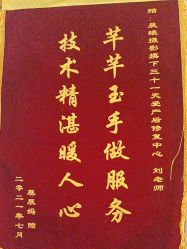 赠:晨曦摄影旗下三十一天受产后修复中心 刘老师
芊芊玉手做服务
技术精湛暖人心
晨晨妈 赠
二零二一年七月